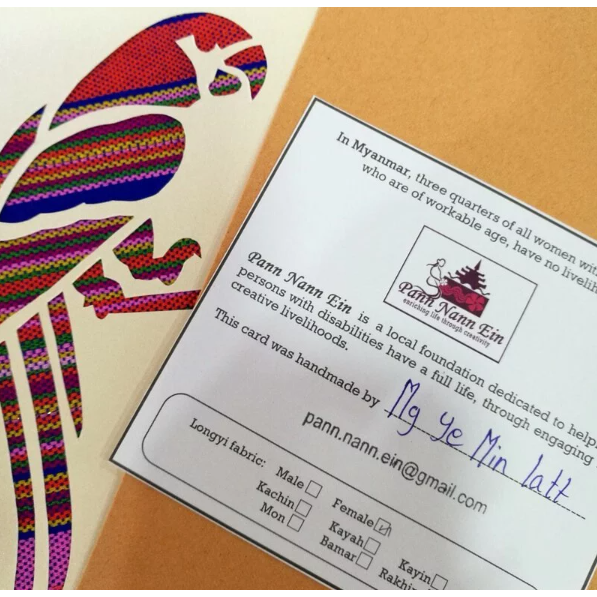 In Myanmar, three quarters of all women with
who are of workable age, have no livelih
Pann Nann Ein
enriching life through creativity
Pann Nann Ein is a local foundation dedicated to help
persons with disabilities have a full life, through engaging
creative livelihoods.
This card was handmade by Mg Ye Min latt
pann.nann.ein@gmail.com
Longyi fabric: Male Female
Kachin Kayah Kayin
Mon Bamar Rakhi